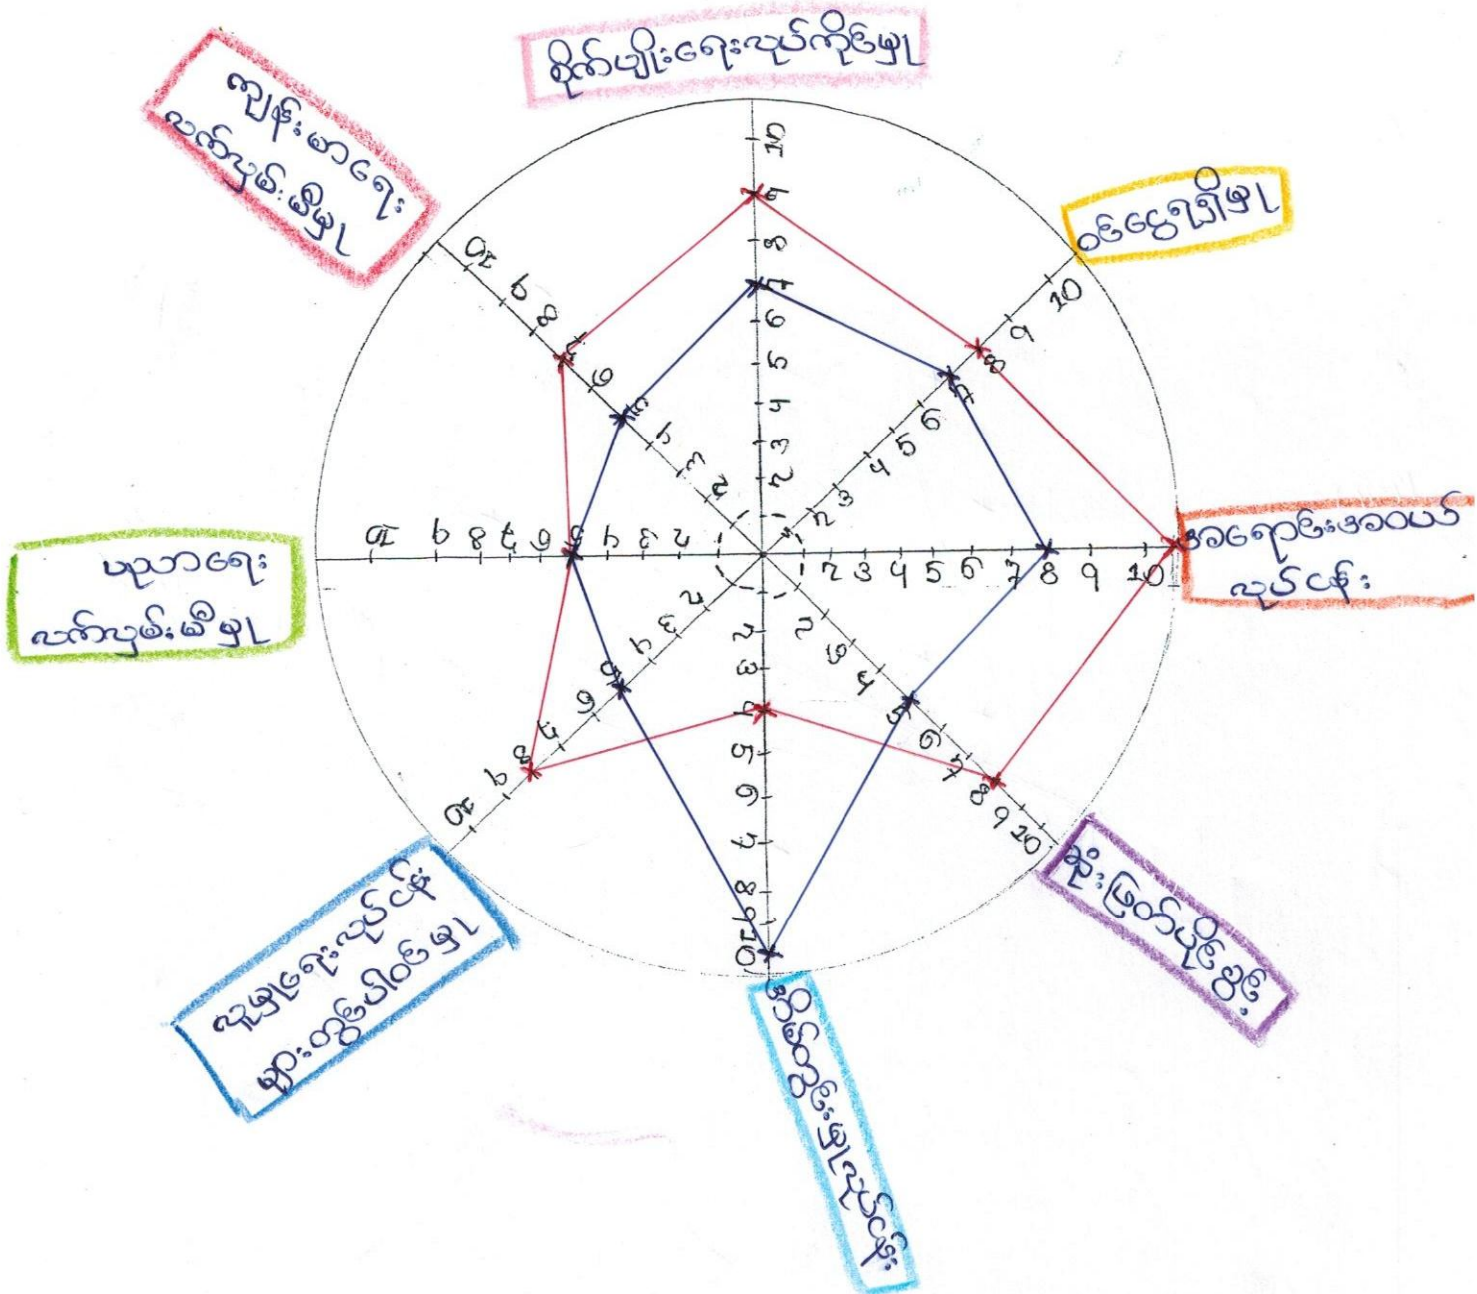 စိုက်ပျိုးရေးလုပ်ကိုင်မှု
ဝင်ငွေရရှိမှု
အရောင်းအဝယ်
လုပ်ငန်း
ဆုံးဖြတ်ပိုင်ခွင့်
အိမ်တွင်းမှုလုပ်ငန်း
လူမှုရေးလုပ်ငန်း
များတွင်ပါဝင်မှု
ပညာရေး
လက်လှမ်းမီမှု
ကျန်းမာရေး
လက်လှမ်းမီမှု
10
9
8
7
6
5
4
3
2
2 3 4 5 6 7 8 9 10
2 3 4 5 6 7 8 9 10
2 3 4 5 6 7 8 9 10
2 3 4 5 6 7 8 9 10
2 3 4 5 6 7 8 9 10
10 9 8 7 6 5 4 3 2
10 9 8 7 6 5 4 3 2